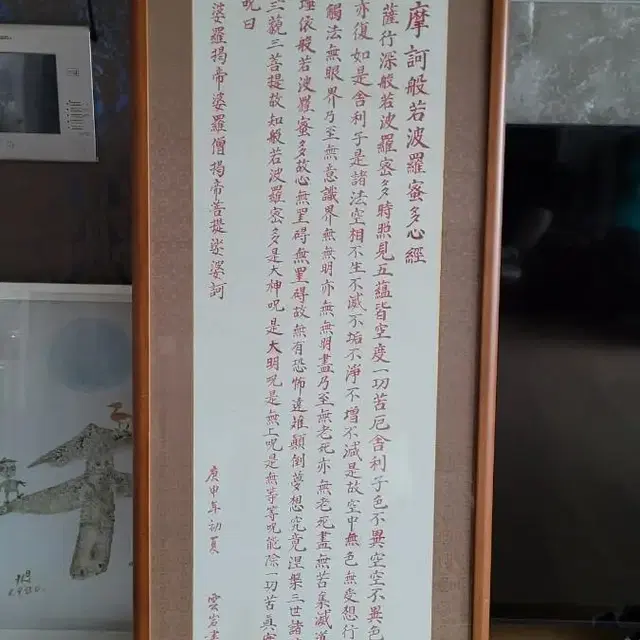 摩訶般若波羅蜜多心經
薩行深般若波羅蜜多時照見五蘊皆空度一切苦厄舍利子色不異空空不異色
亦復如是舍利子是諸法空相不生不滅不垢不淨不增不減是故空中無色無受想行
觸法無眼界乃至無意識界無無明亦無無明盡乃至無老死亦無老死盡無苦集滅道
埵依般若波羅蜜多故心無罣碍無罣碍故無有恐怖遠離顛倒夢想究竟涅槃三世諸
三藐三菩提故知般若波羅蜜多是大神呪是大明呪是無上呪是無等等呪能除一切苦真實
呪曰
婆羅揭帝婆羅僧揭帝菩提娑婆訶
庚申年初夏